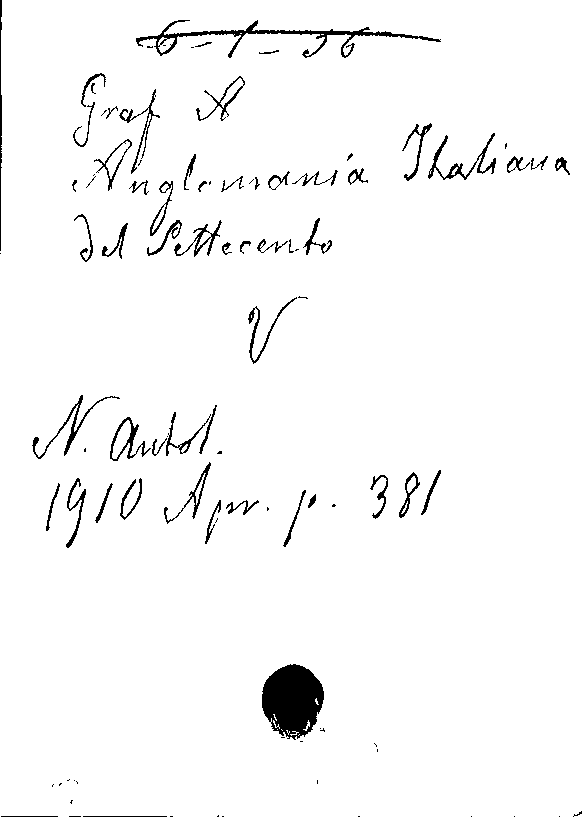 6-1-36
Graf A
Anglomania Italiana
del Settecento
V
N. Antol.
1910 Apr. p. 381